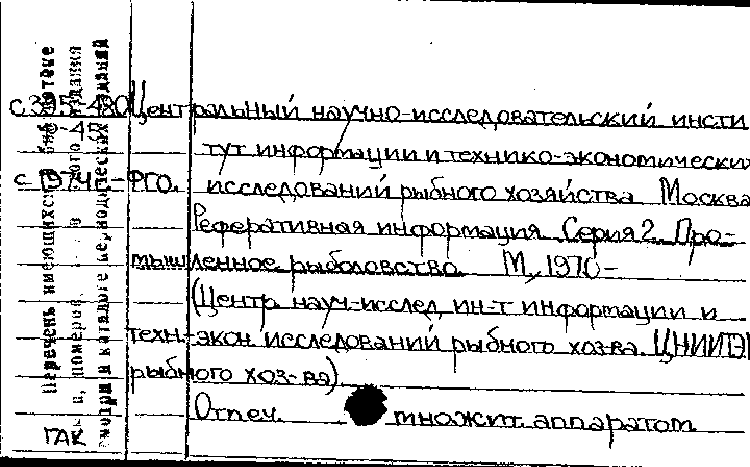 с 375-480 Центральный научно-исследовательский инсти
тут информации и технико-экономически
с 1974г-РГО. исследований рыбного хозяйства Москва
Реферативная информация. Серия 2. Про-
мышленное рыболовство М, 1970-
(Центр науч-исслед. ин-т информации и
техн.-экон. исследований рыбного хоз-ва. ЦНИИТЭИ
рыбного хоз-ва)
Отпеч. множит. аппаратом
ГАК
Перечень имеющихся
номеров, издания
каталоге изданий